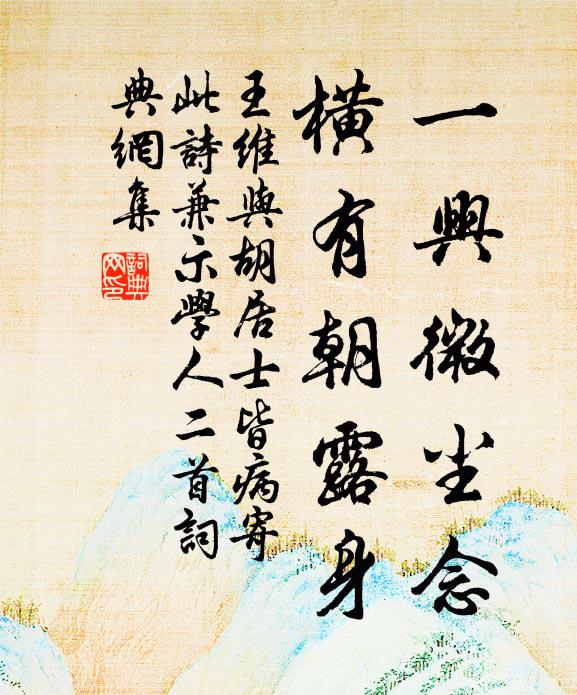 一興微尘念
橫有朝露身
王維與胡居士皆病寄
此詩兼示學人二首詞
典網集
詞典
网印